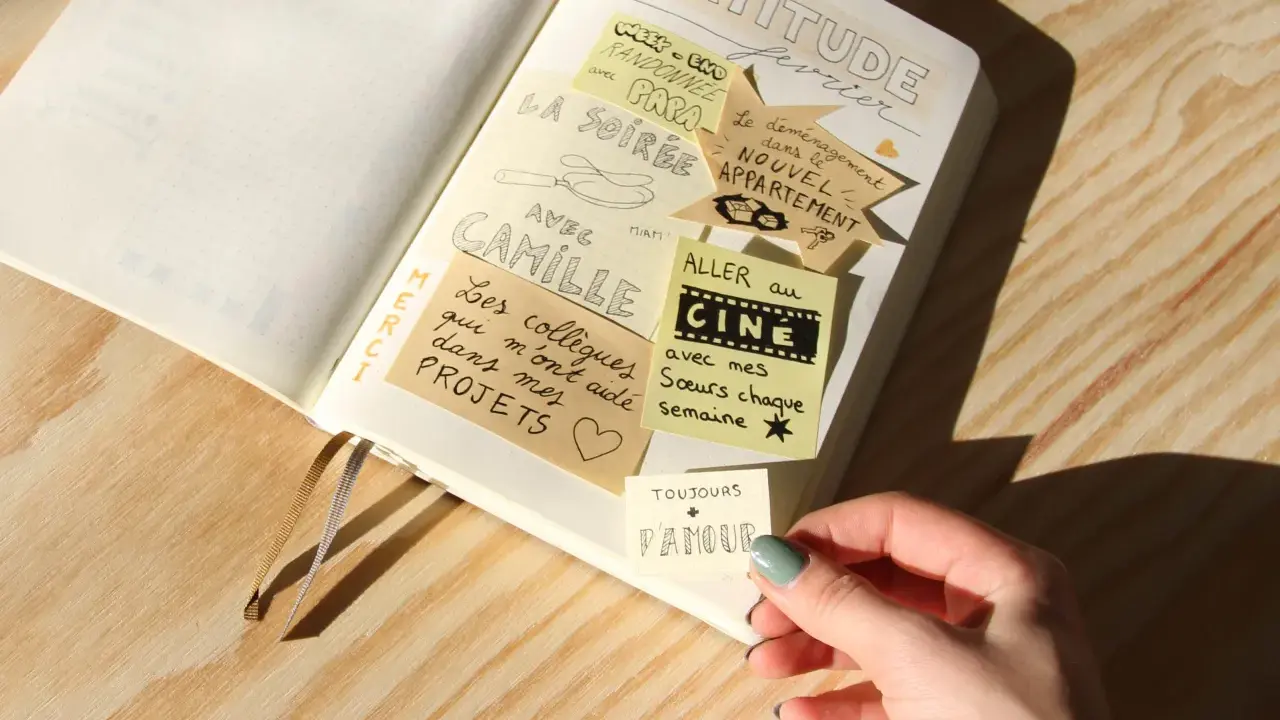 TITUDE
fevrier
WEEK-END
RANDONNÉE
avec PAPA
Le déménagement
dans le
NOUVEL
APPARTEMENT
LA SOIRÉE
AVEC
MIAM!
CAMILLE
MERCI
Les collègues
qui m'ont aidé
dans mes
PROJETS
ALLER au
CINÉ
avec mes
Sœurs chaque
semaine
TOUJOURS
+
D'AMOUR